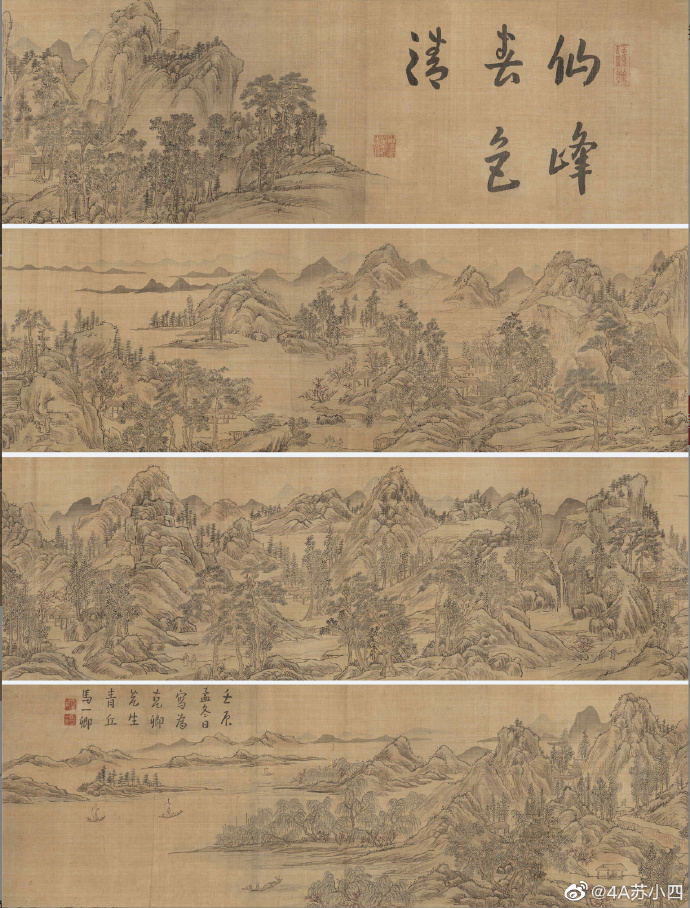 仙峰
春色
清
壬辰
孟冬日
寫為
卿
先生
青丘
馬一卿
@4A苏小四